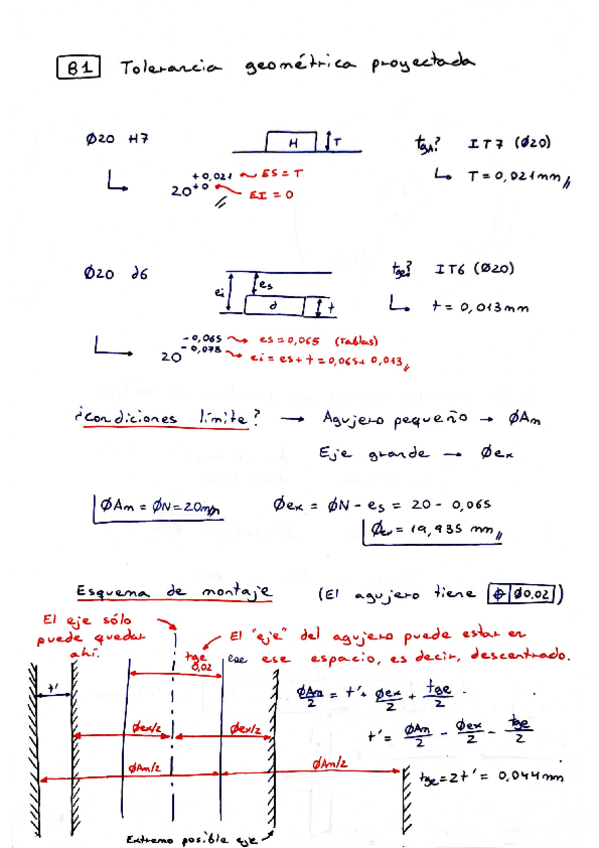 B1 Tolerancia geométrica proyectada
Ø20 H7
H
T
tgA?
IT7 (Ø20)
20 +0,021 ES = T
+0 EI = 0
T = 0,021 mm
Ø20 d6
ei
es
d
t
tge?
IT6 (Ø20)
t = 0,013 mm
20 -0,065 es = 0,065 (Tablas)
-0,078 ei = es + t = 0,065 + 0,013
¿Condiciones límite? → Agujero pequeño → ØAm
Eje grande → Øex
ØAm = ØN = 20mm
Øex = ØN - es = 20 - 0,065
Øex = 19,935 mm
Esquema de montaje (El agujero tiene ⌖ Ø0.02)
El eje sólo
puede quedar
ahí.
El "eje" del agujero puede estar en
ese ese espacio, es decir, descentrado.
tge
0,02
t'
ØAm/2 = t' + Øex/2 + tge/2
Øex/2
Øex/2
t' = ØAm/2 - Øex/2 - tge/2
ØAm/2
ØAm/2
tge = 2t' = 0,044mm
Extremo posible eje